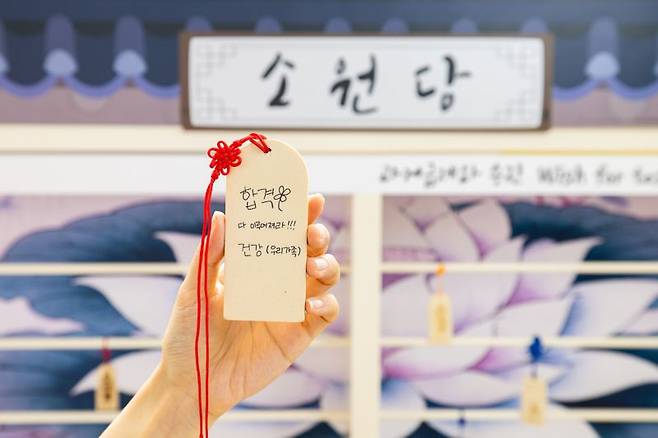 소원당
합격
다 이루어져라!!!
건강(우리가족)
Wish for